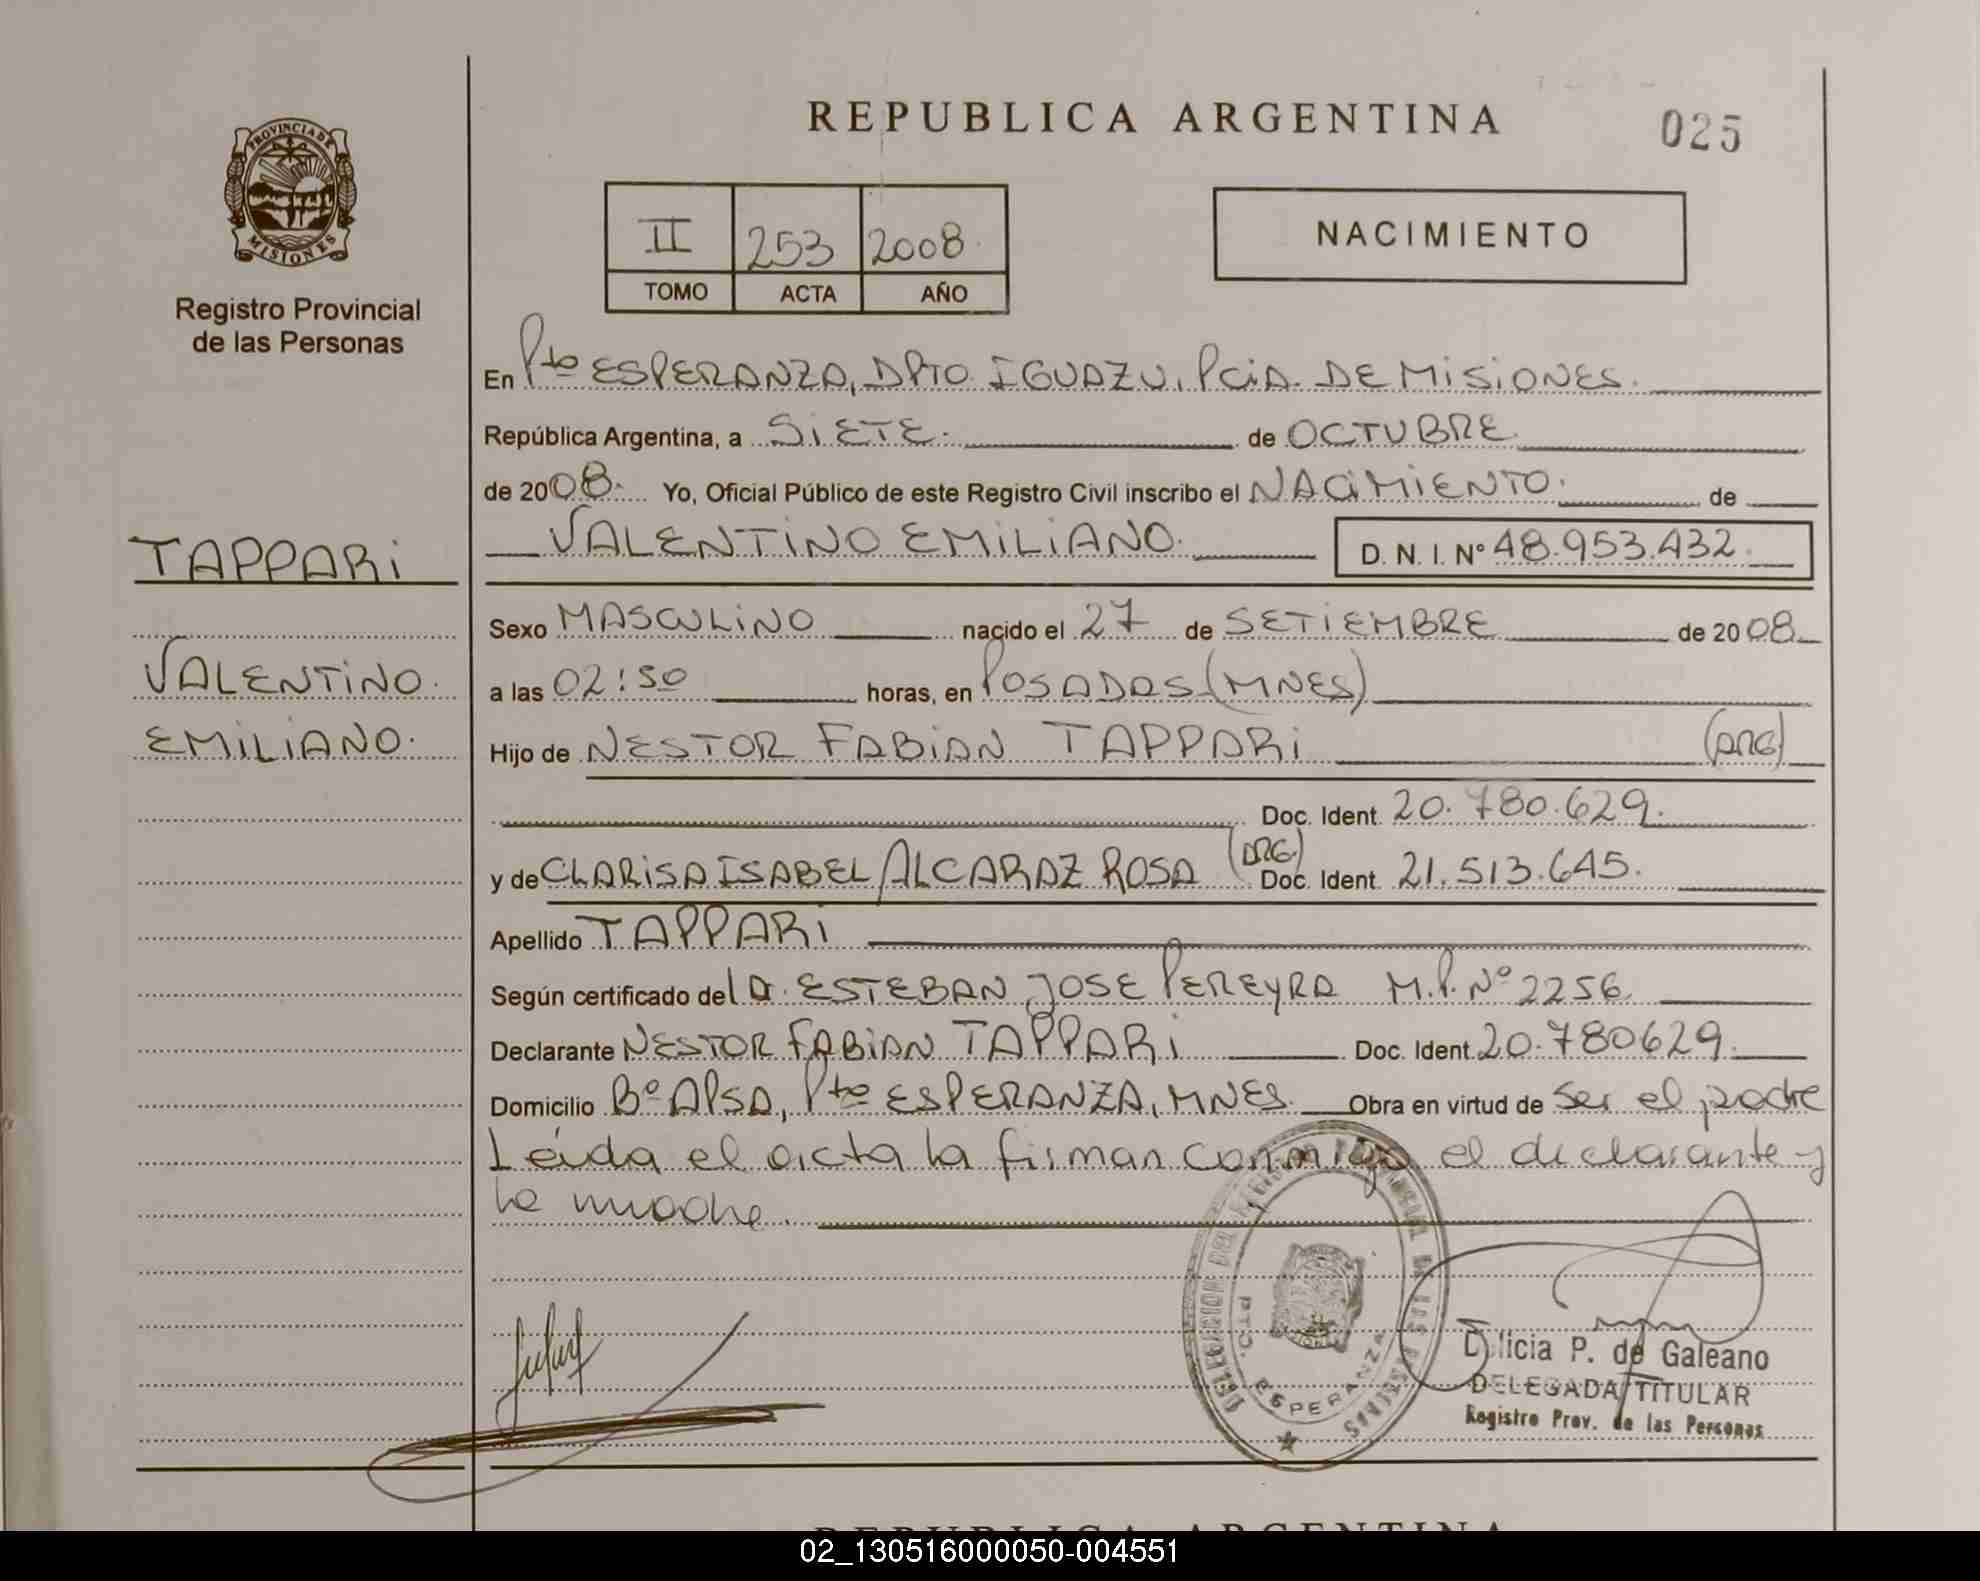 REPUBLICA ARGENTINA
025
PROVINCIA DE
MISIONES
Registro Provincial
de las Personas
II 253 2008
TOMO ACTA AÑO
NACIMIENTO
En Pto ESPERANZA, DPTO IGUAZU, PCiA. DE MiSiONES.
República Argentina, a SiETE. de OCTUBRE
de 2008. Yo, Oficial Público de este Registro Civil inscribo el NACiMiENTO. de
VALENTiNO EMiLiANO. D. N. I. Nº 48.953.432.
TAPPARi
VALENTiNO.
EMiLiANO.
Sexo MASCULiNO nacido el 27 de SETiEMBRE de 2008
a las 02:50 horas, en POSADAS (MNES)
Hijo de NESTOR FABiAN TAPPARi (ARG)
Doc. Ident. 20.780.629.
y de CLARiSA ISABEL ALCARAZ ROSA (ARG) Doc. Ident. 21.513.645.
Apellido TAPPARi
Según certificado del Dr. ESTEBAN JOSE PEREYRA M.P. Nº 2256
Declarante NESTOR FABiAN TAPPARi Doc. Ident. 20.780629.
Domicilio Bº APSA, Pto ESPERANZA, MNES. Obra en virtud de ser el padre
Leída el acta la firman conmigo el declarante y
la madre.
DELEGACION DEL REGISTRO PROVINCIAL DE LAS PERSONAS
PTO. ESPERANZA
Delicia P. de Galeano
DELEGADA TITULAR
Registro Prov. de las Personas
REPUBLICA ARGENTINA
02_130516000050-004551